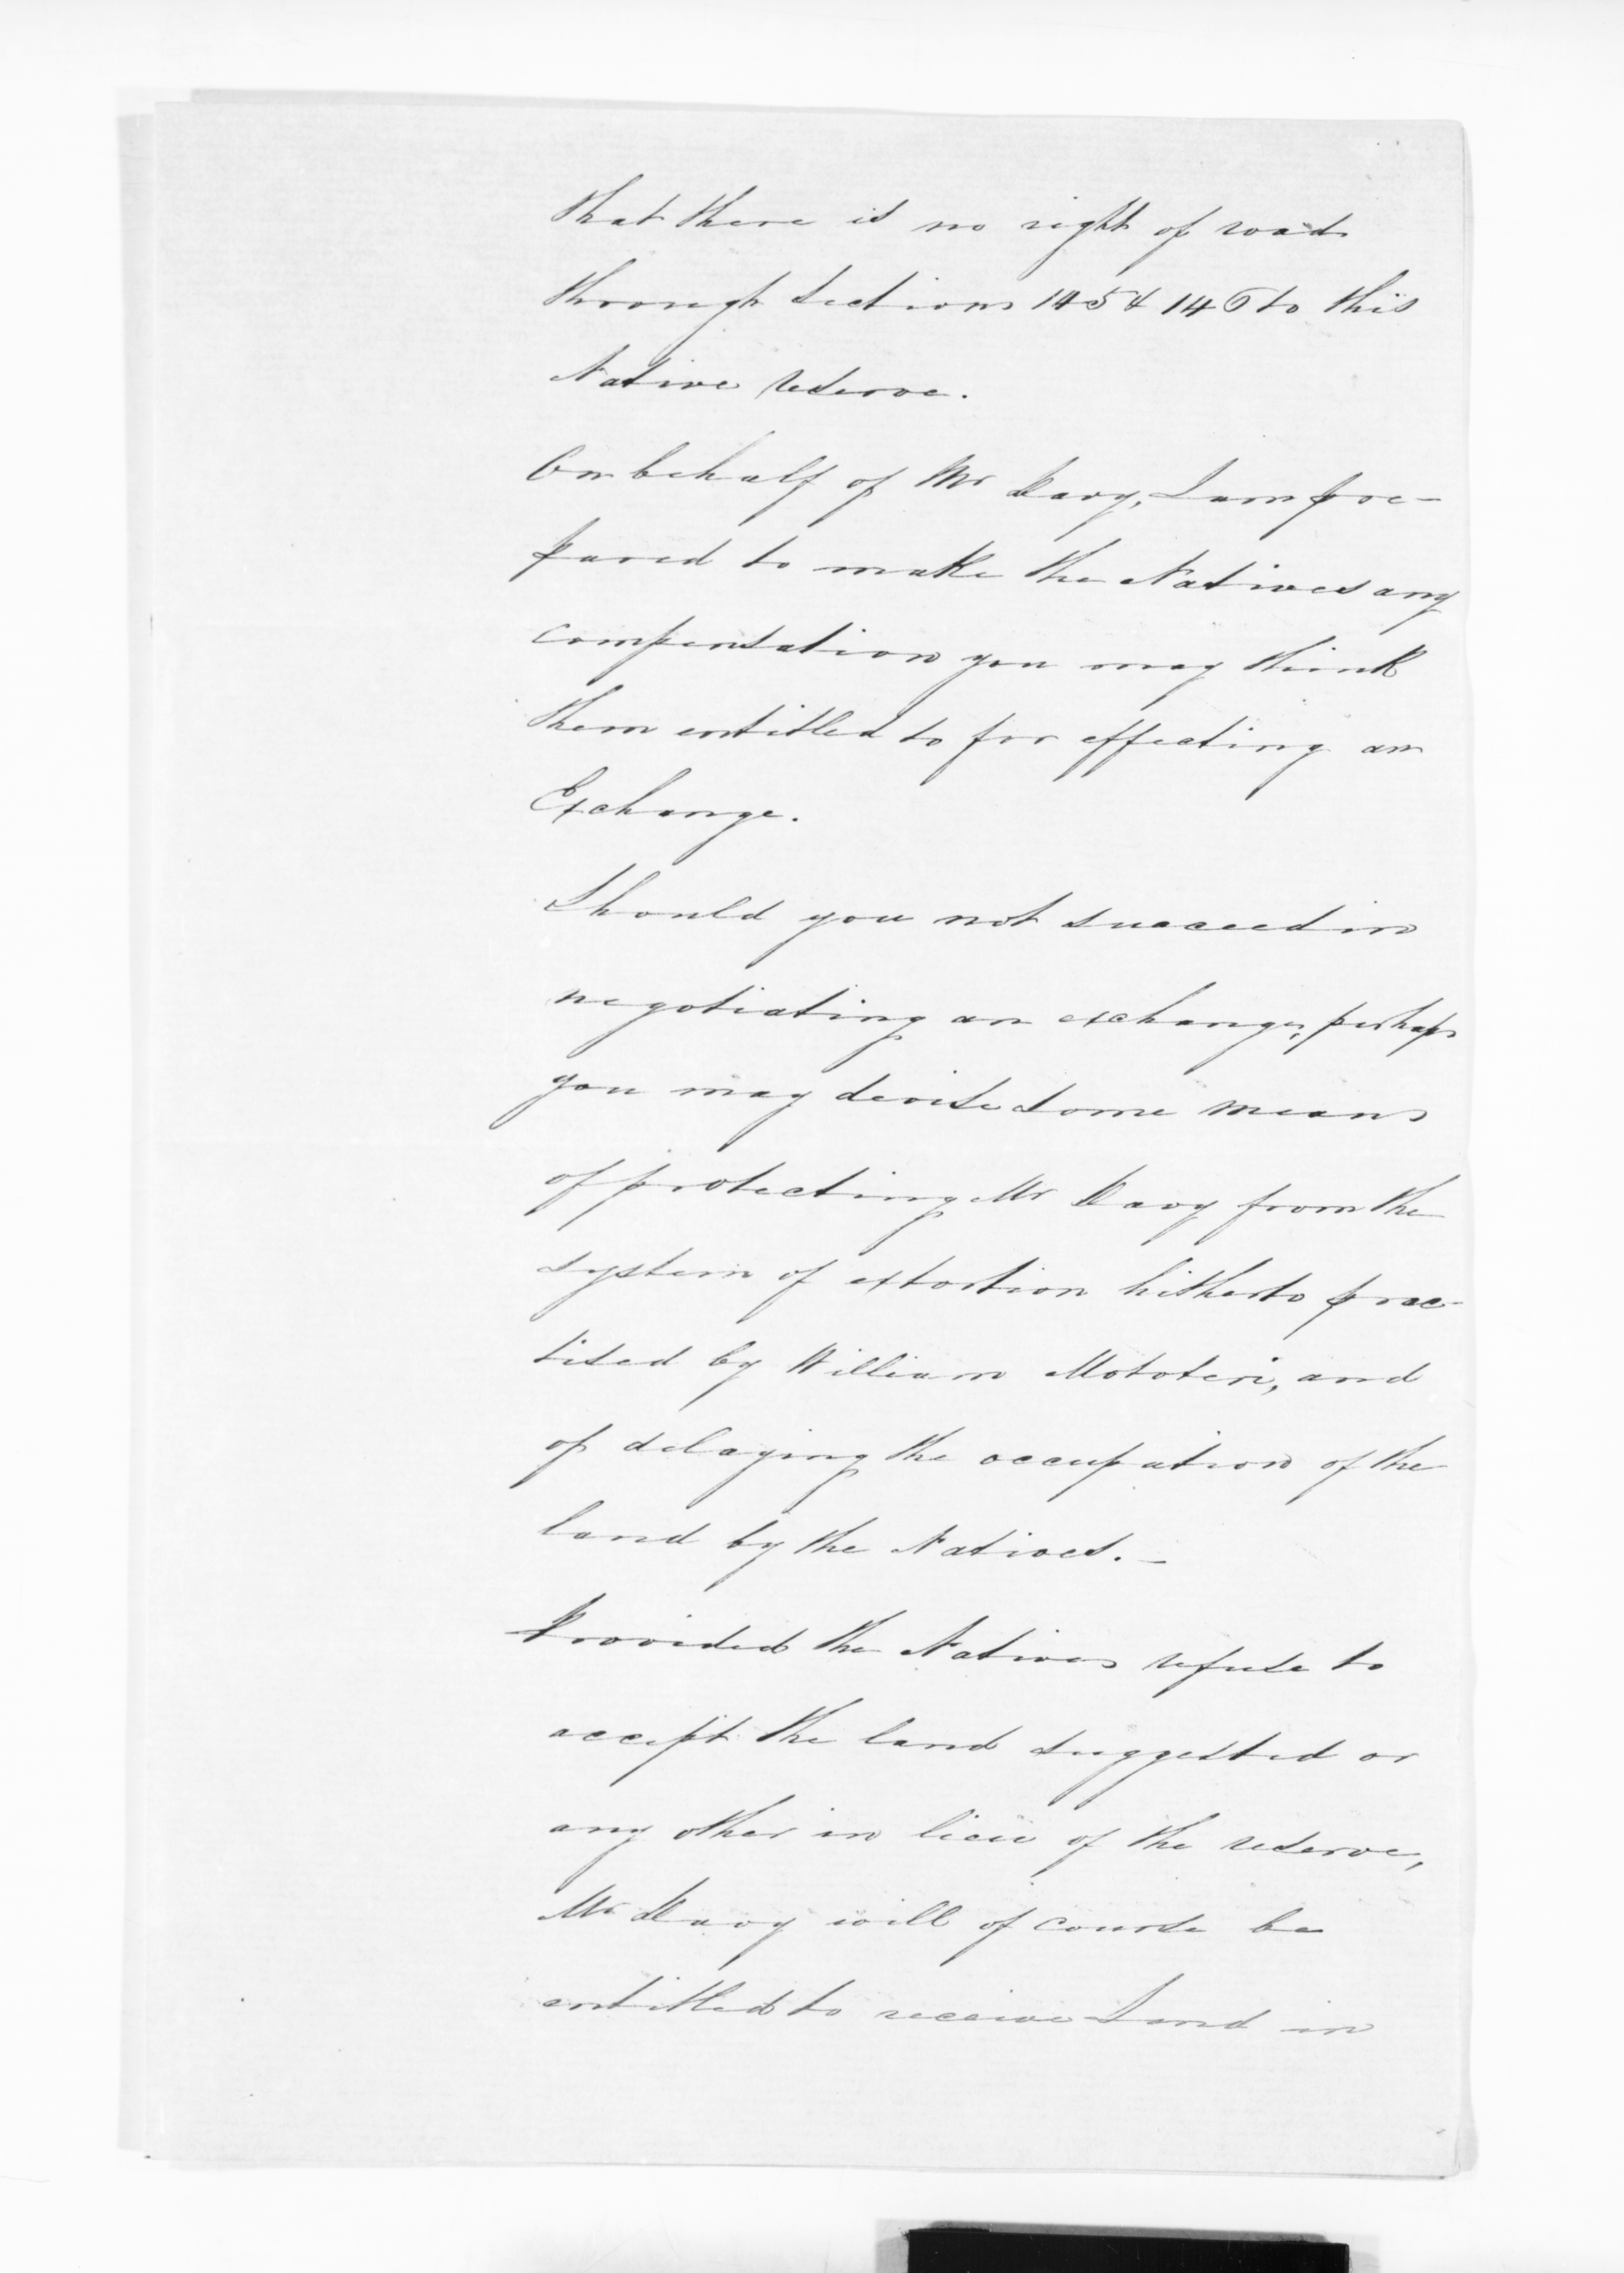 that there is no right of road
through Sections 145 & 146 to this
Native reserve.
On behalf of Mr Davy, I am pre-
pared to make the Natives any
compensation you may think
them entitled to for effecting an
Exchange.
Should you not succeed in
negotiating an exchange, perhaps
you may devise some means
of protecting Mr Davy from the
system of extortion hitherto prac-
tised by William Mototere, and
of delaying the occupation of the
land by the Natives. _
Provided the Natives refuse to
accept the land suggested or
any other in lieu of the reserve,
Mr Davy will of course be
entitled to receive Land in